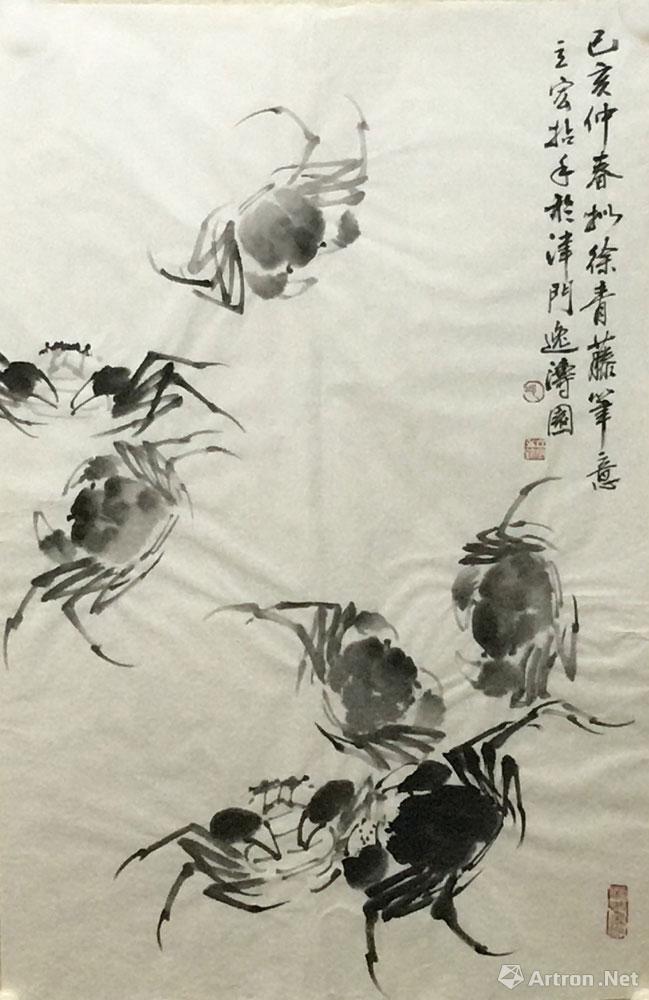 己亥仲春拟徐青藤笔意
立宏拈手於津門逸濤園
Artron.Net